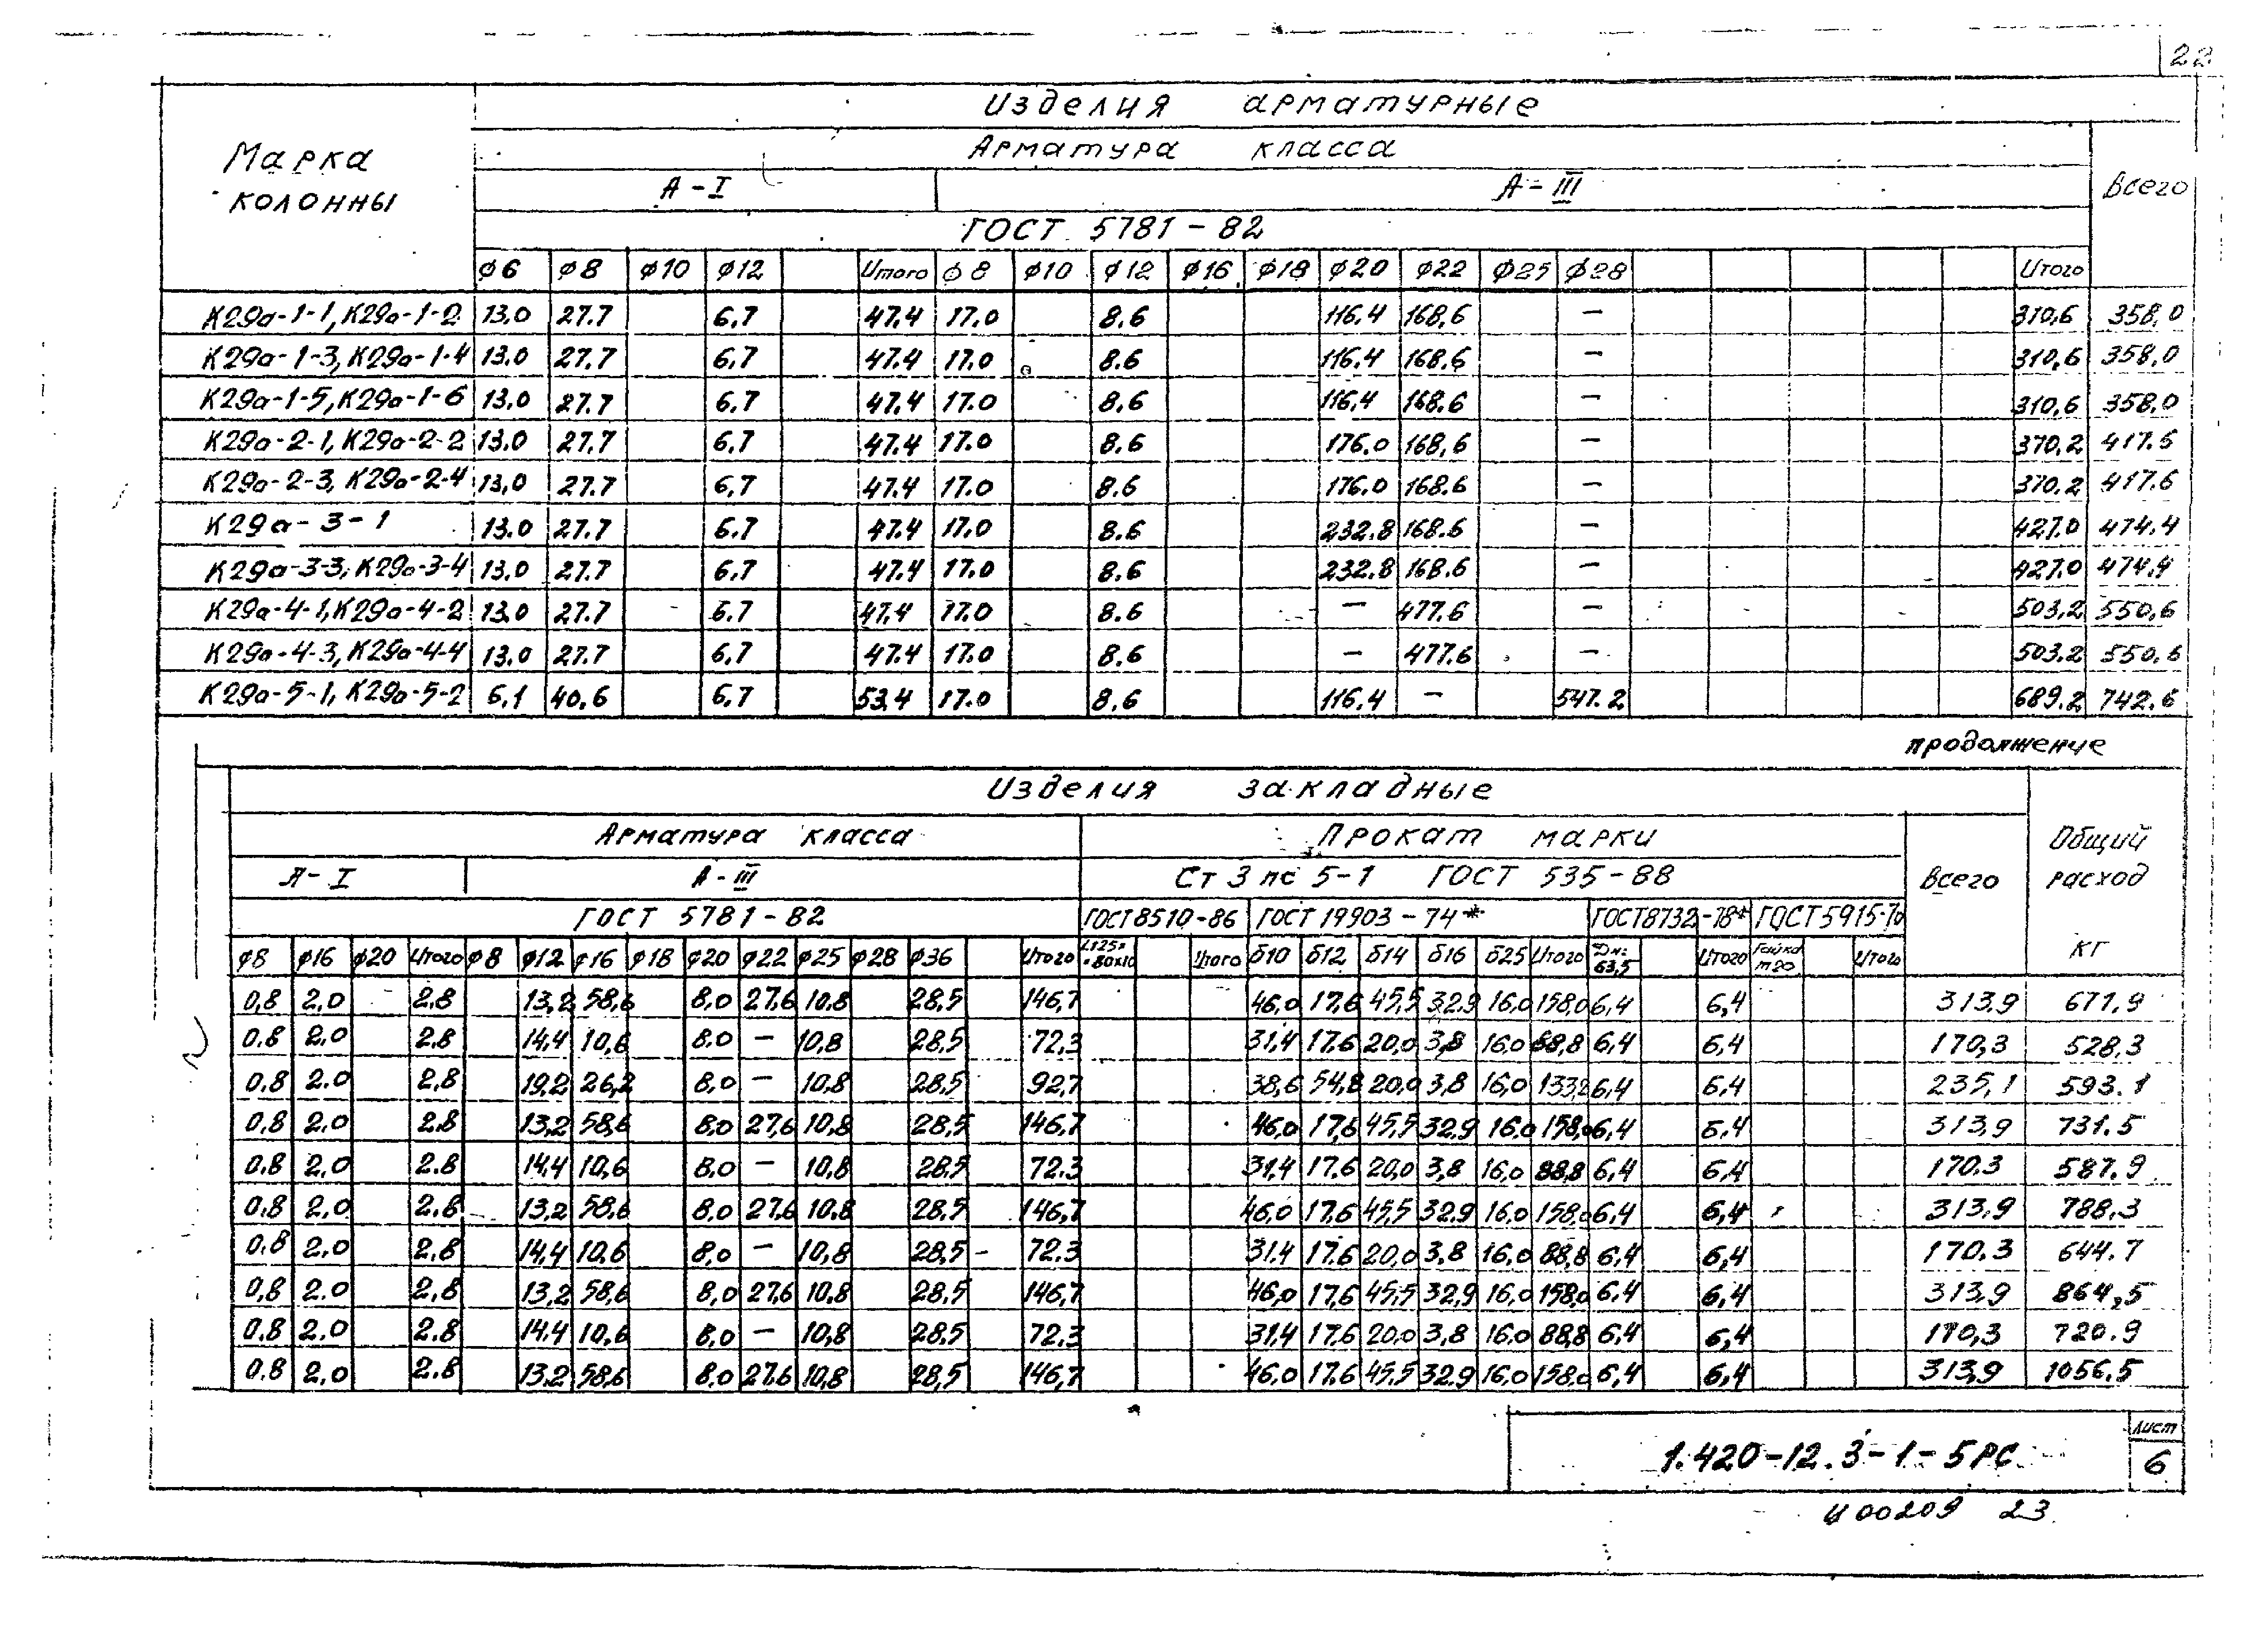 22
Изделия арматурные
Марка колонны
Арматура класса
Всего
А-I А-III
ГОСТ 5781-82
ф6 ф8 ф10 ф12 Итого ф8 ф10 ф12 ф16 ф18 ф20 ф22 ф25 ф28 Итого
К29а-1-1, К29а-1-2 13.0 27.7 6.7 47.4 17.0 8.6 116.4 168.6 — 310,6 358,0
К29а-1-3, К29а-1-4 13.0 27.7 6.7 47.4 17.0 8.6 116.4 168.6 — 310,6 358,0
К29а-1-5, К29а-1-6 13.0 27.7 6.7 47.4 17.0 8.6 116,4 168.6 — 310,6 358,0
К29а-2-1, К29а-2-2 13.0 27.7 6.7 47.4 17.0 8.6 176.0 168,6 — 370,2 417.6
К29а-2-3, К29а-2-4 13,0 27.7 6,7 47.4 17.0 8.6 176.0 168.6 — 370.2 417.6
К29а-3-1 13.0 27.7 6.7 47.4 17.0 8.6 232.8 168.6 — 427.0 474.4
К29а-3-3, К29а-3-4 13.0 27.7 6.7 47.4 17.0 8.6 232.8 168.6 — 427.0 474.4
К29а-4-1, К29а-4-2 13.0 27.7 6.7 47.4 17.0 8.6 — 477.6 — 503,2 550,6
К29а-4-3, К29а-4-4 13.0 27.7 6.7 47.4 17.0 8.6 — 477.6 — 503.2 550,6
К29а-5-1, К29а-5-2 6,1 40.6 6.7 53.4 17.0 8.6 116.4 — 547.2 689.2 742.6
продолжение
Изделия закладные
Арматура класса Прокат марки
Всего
Общий расход кг
А-I А-III Ст 3 пс 5-1 ГОСТ 535-88
ГОСТ 5781-82 ГОСТ 8510-86 ГОСТ 19903-74* ГОСТ 8732-78* ГОСТ 5915-70
ф8 ф16 ф20 Итого ф8 ф12 ф16 ф18 ф20 ф22 ф25 ф28 ф36 Итого L125х80х10 Итого б10 б12 б14 б16 б25 Итого Дн=63,5 Итого Гайка м20 Итого
0,8 2,0 2.8 13,2 58,6 8,0 27.6 10,8 28,5 146,7 46,0 17,6 45,5 32.9 16,0 158,0 6,4 6,4 313,9 671,9
0.8 2.0 2.8 14,4 10,6 8.0 — 10,8 28,5 72,3 31,4 17.6 20,0 3,8 16,0 88,8 6,4 6.4 170,3 528,3
0.8 2.0 2,8 19,2 26,2 8,0 — 10,8 28,5 92,7 38,6 54,8 20,0 3,8 16,0 133,2 6,4 6.4 235,1 593.1
0.8 2.0 2.8 13,2 58,6 8.0 27,6 10,8 28,5 146,7 46,0 17,6 45,5 32.9 16.0 158,0 6,4 6.4 313,9 731.5
0.8 2.0 2.8 14,4 10,6 8,0 — 10,8 28.5 72.3 31,4 17.6 20,0 3,8 16,0 88,8 6,4 6,4 170.3 587.9
0,8 2,0 2.8 13,2 58,6 8.0 27,6 10.8 28,5 146,7 46,0 17,6 45,5 32.9 16,0 158,0 6,4 6,4 313.9 788,3
0.8 2.0 2.8 14,4 10,6 8,0 — 10,8 28,5 72.3 31.4 17.6 20,0 3,8 16,0 88,8 6,4 6,4 170.3 644.7
0,8 2.0 2,8 13,2 58,6 8,0 27,6 10,8 28.5 146,7 46,0 17,6 45,5 32,9 16,0 158,0 6.4 6,4 313,9 864,5
0.8 2.0 2.8 14.4 10,6 8,0 — 10,8 28,5 72.3 31,4 17,6 20,0 3,8 16.0 88,8 6,4 6,4 170,3 720.9
0.8 2,0 2.8 13.2 58,6 8.0 27.6 10,8 28,5 146,7 46,0 17.6 45,5 32.9 16,0 158,0 6,4 6,4 313,9 1056.5
1.420-12.3-1-5РС
Лист
6
Ц00209 23